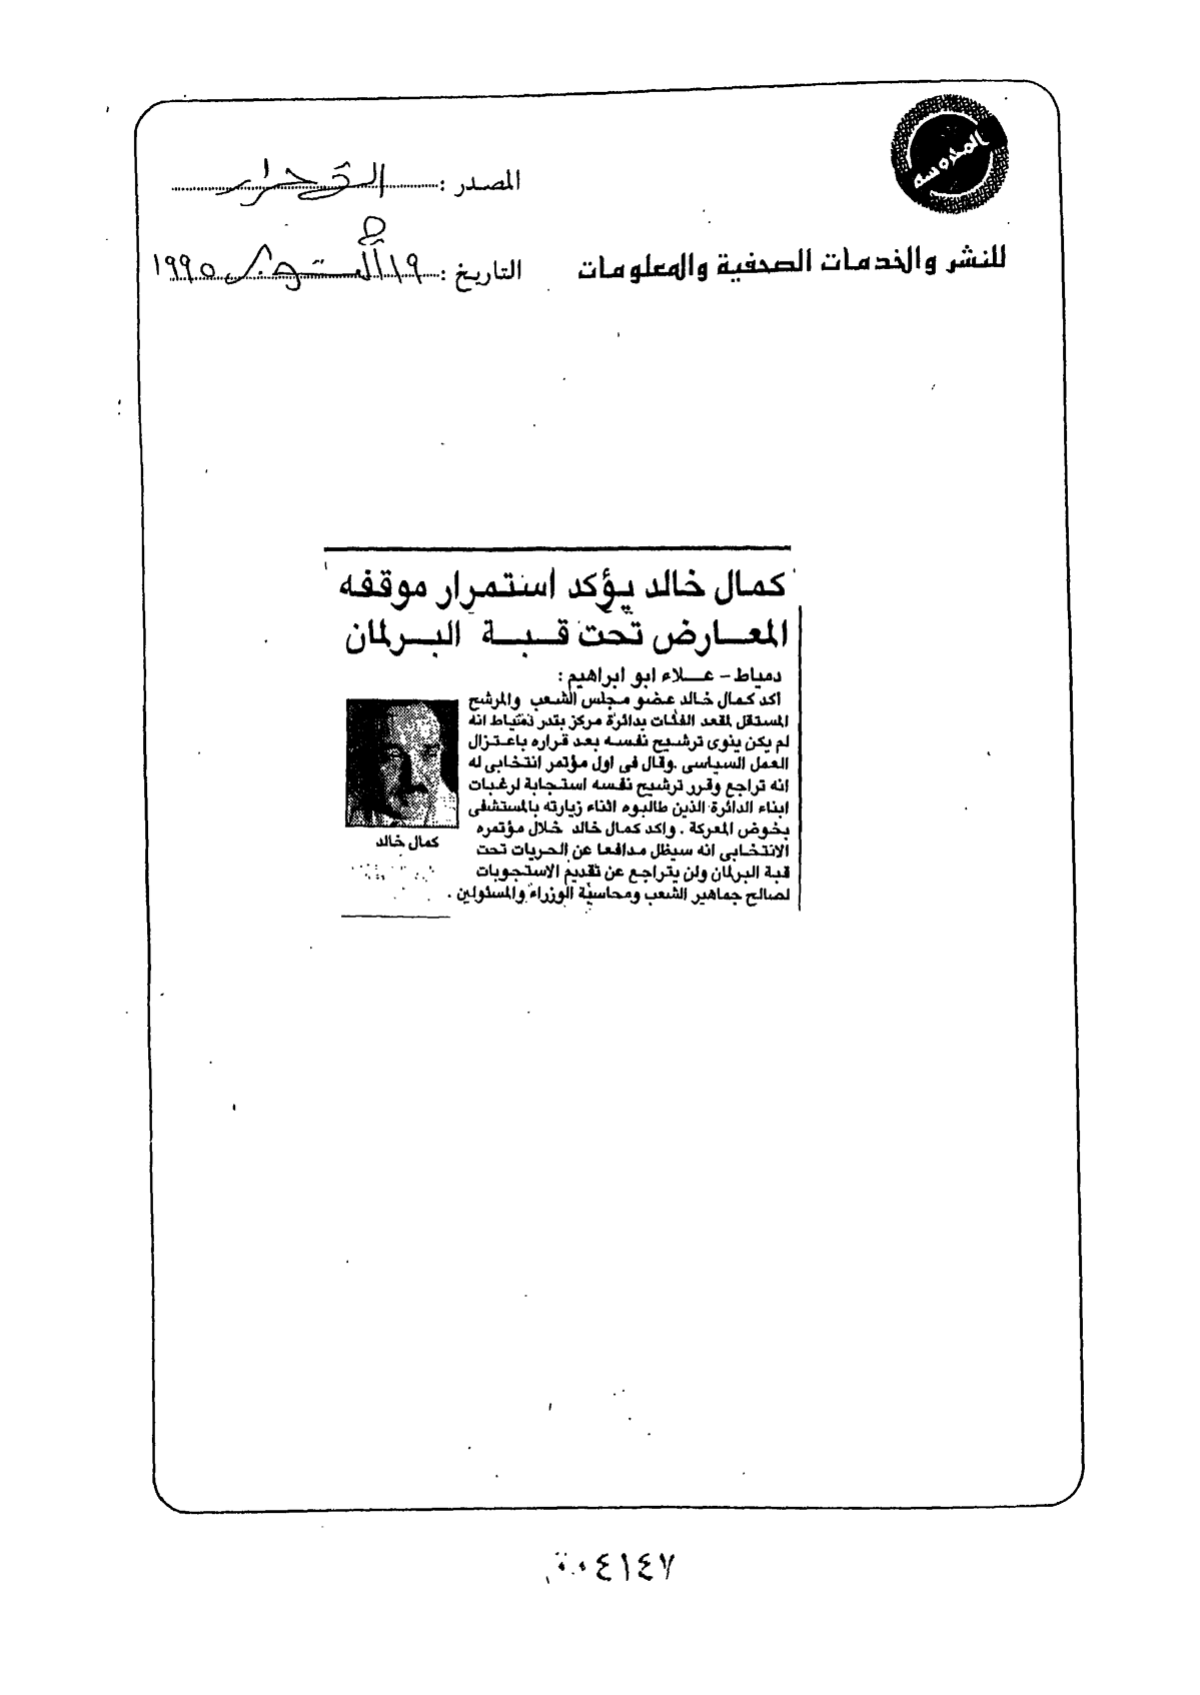 المحروسة
للنشر والخدمات الصحفية والمعلومات
المصدر : الأحرار
التاريخ : ١٩ أكتوبر ١٩٩٥
كمال خالد يؤكد استمرار موقفه
المعارض تحت قبة البرلمان
دمياط - علاء ابو ابراهيم :
اكد كمال خالد عضو مجلس الشعب والمرشح
المستقل لمقعد الفئات بدائرة مركز بندر دمياط انه
لم يكن ينوى ترشيح نفسه بعد قراره باعتزال
العمل السياسى . وقال فى اول مؤتمر انتخابى له
انه تراجع وقرر ترشيح نفسه استجابة لرغبات
ابناء الدائرة الذين طالبوه اثناء زيارته بالمستشفى
بخوض المعركة . واكد كمال خالد خلال مؤتمره
الانتخابى انه سيظل مدافعا عن الحريات تحت
قبة البرلمان ولن يتراجع عن تقديم الاستجوبات
لصالح جماهير الشعب ومحاسبة الوزراء والمسئولين .
كمال خالد
٤١٤٧